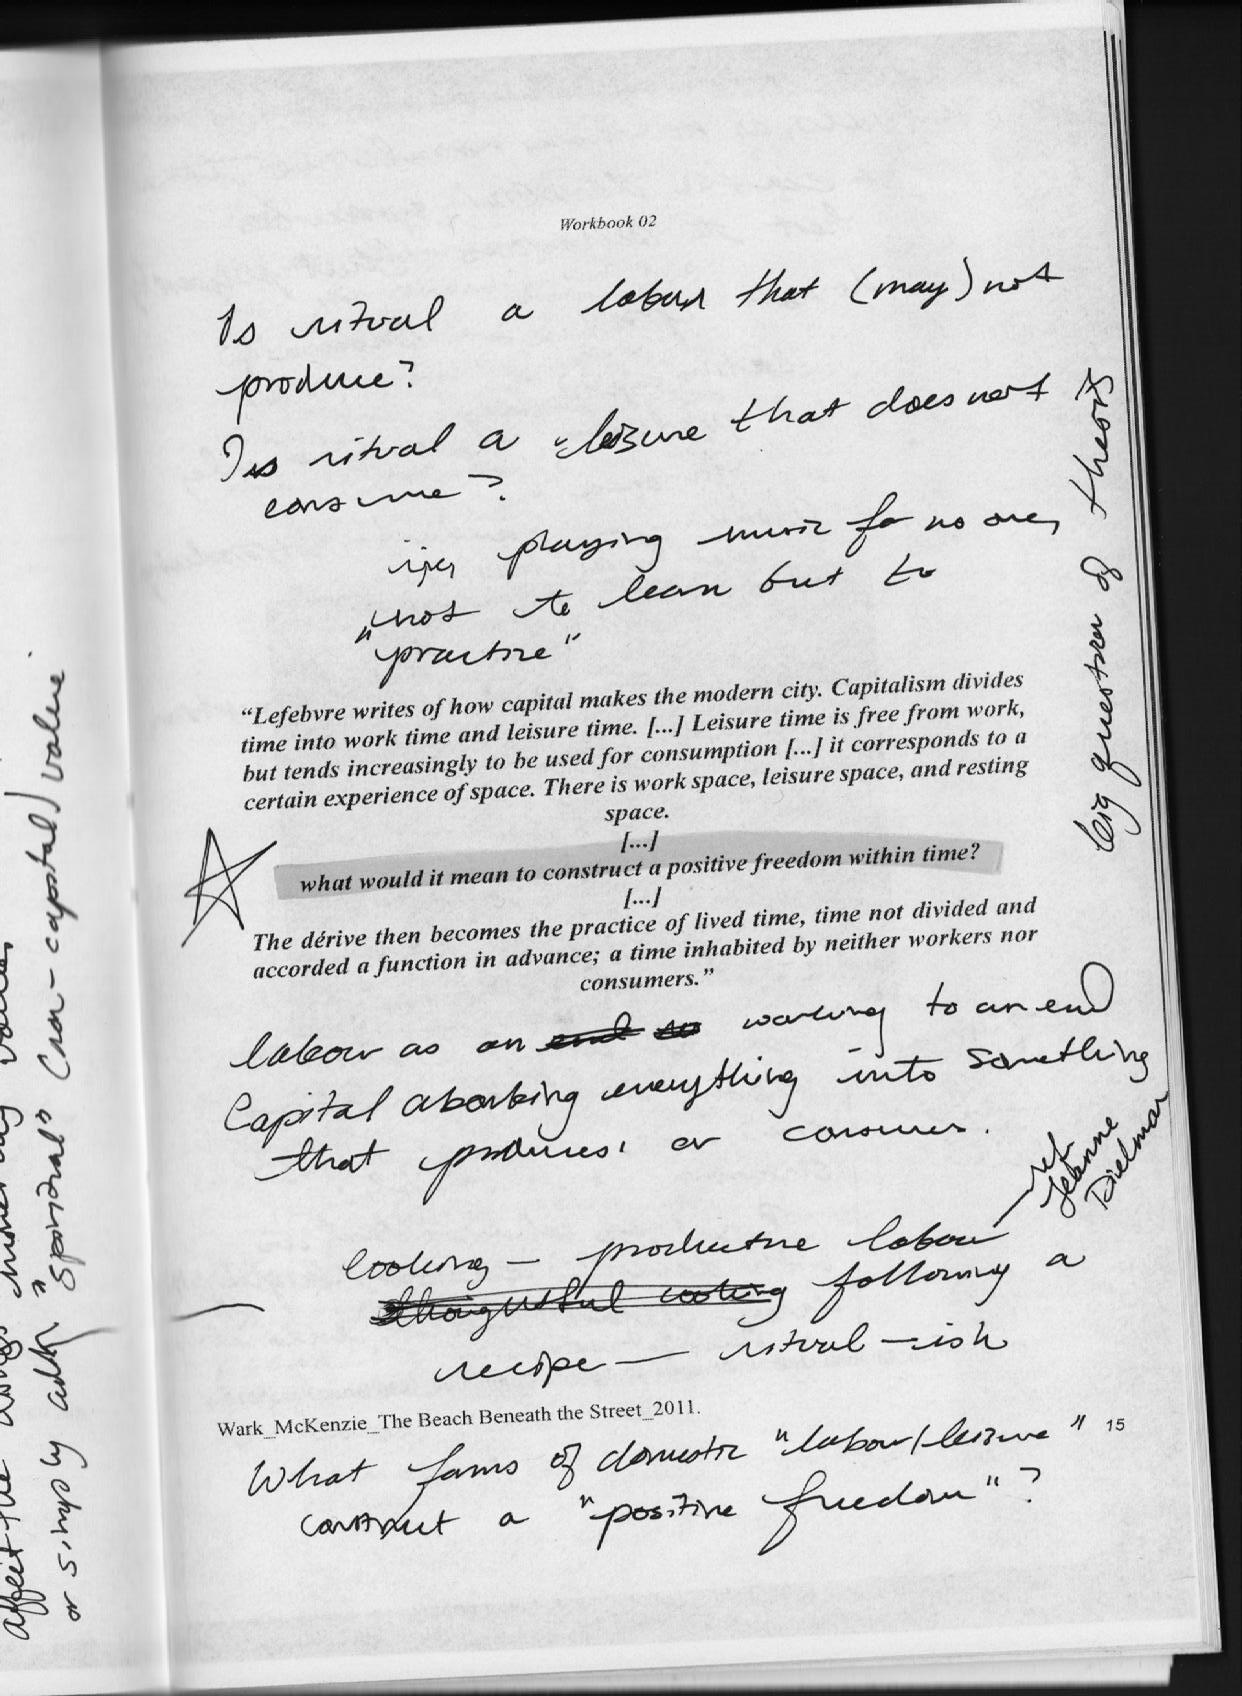 Workbook 02
Is ritual a labour that (may) not
produce?
Is ritual a "leisure that does not
consume?
i.e., playing music for no one,
not to learn but to
"practice"
“Lefebvre writes of how capital makes the modern city. Capitalism divides
time into work time and leisure time. [...] Leisure time is free from work,
but tends increasingly to be used for consumption [...] it corresponds to a
certain experience of space. There is work space, leisure space, and resting
space.
[...]
what would it mean to construct a positive freedom within time?
[...]
The dérive then becomes the practice of lived time, time not divided and
accorded a function in advance; a time inhabited by neither workers nor
consumers.”
big question of theory
labour as an end so working to an end
Capital absorbing everything into something
that produces, or consumes.
ref
Jeanne
Dielman
cooking — productive labour
thoughtful cooking following a
recipe — ritual-ish
Wark_McKenzie_The Beach Beneath the Street_2011.
15
What forms of domestic "labour/leisure"
construct a "positive freedom"?
affect the things
or simply add "spiritual" (non-capital) value